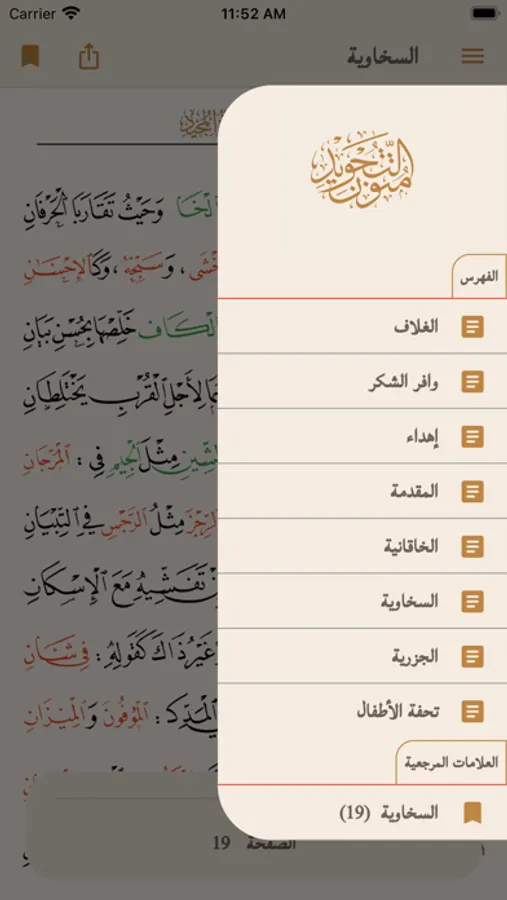 Carrier 11:52 AM
السخاوية
متون التجويد
الفهرس
الغلاف
وافر الشكر
إهداء
المقدمة
الخاقانية
السخاوية
الجزرية
تحفة الأطفال
العلامات المرجعية
السخاوية (19)
الْخَا وَحَيْثُ تَقَارَبَا الْحَرْفَانِ
، وَسَبِّحْهُ ، وَكَالْإِحْسَانِ
الْكَافِ خَلِّصْهَا بِحُسْنِ بَيَانِ
لِأَجْلِ الْقُرْبِ يَخْتَلِطَانِ
الشِّينِ مِثْلَ الْجِيمِ فِي : الْمَرْجَانِ
الرِّجْزَ مِثْلُ الرِّجْسِ فِي التِّبْيَانِ
تَفَشِّيهُ مَعَ الْإِسْكَانِ
وَغَيْرُ ذَاكَ كَقَوْلِهِ : فِي شَانِ
: الْمُوفُونَ وَالْمِيزَانِ
الصفحة 19